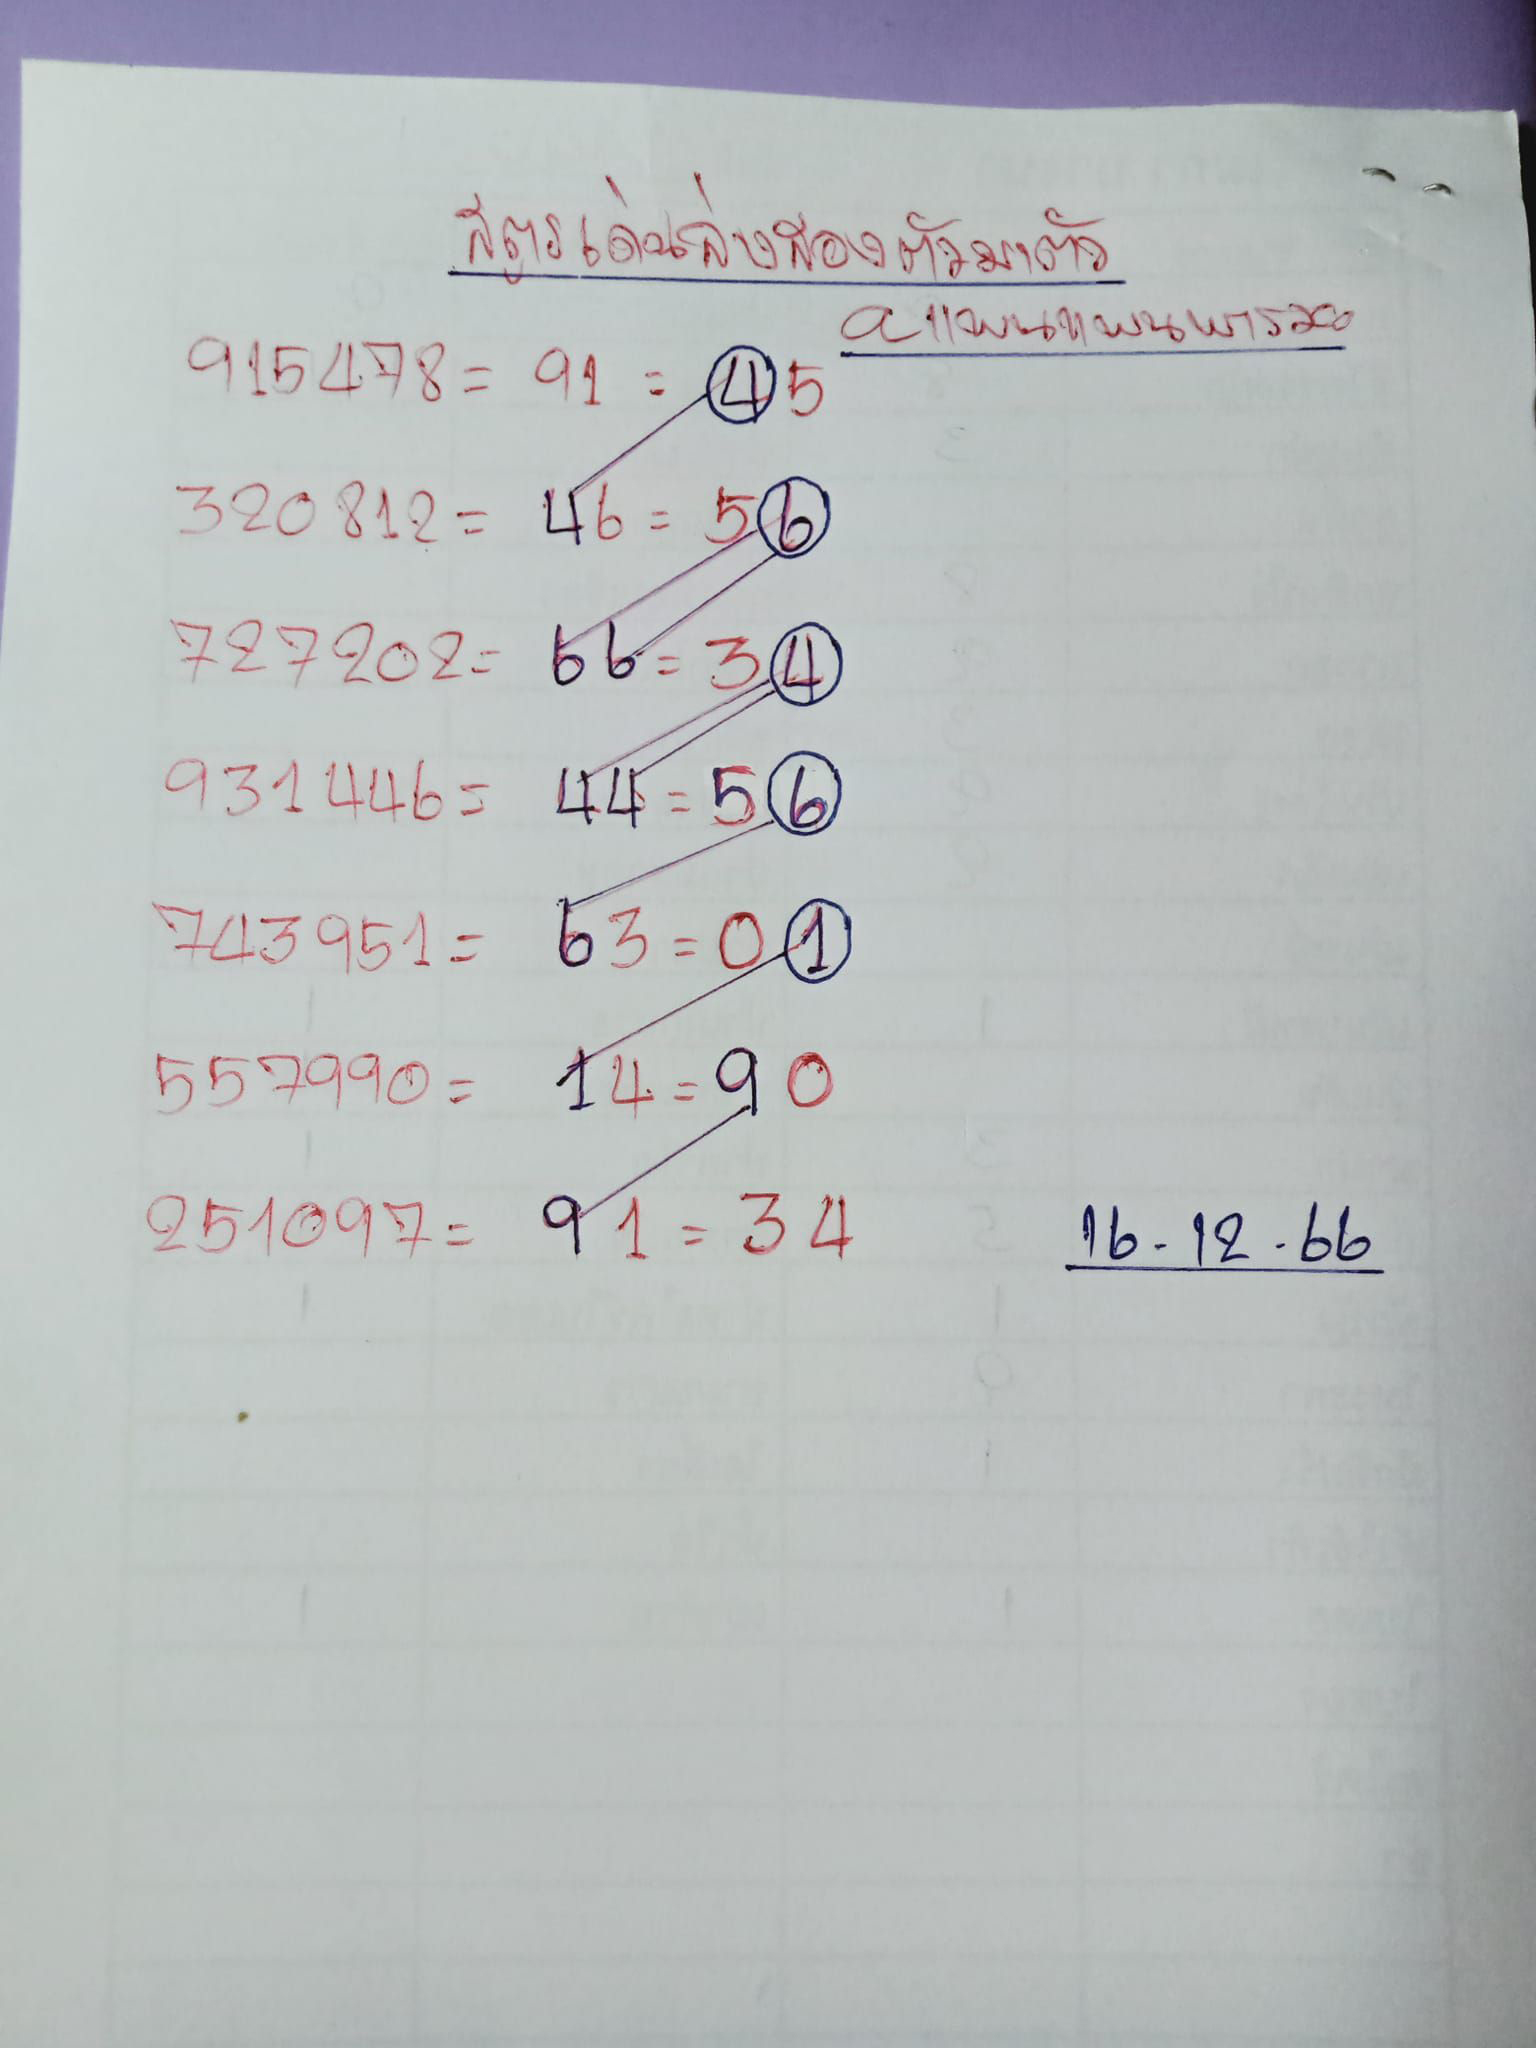 สูตรเด่นล่างสองตัวมาตัว
915478 = 91 = 45
320812 = 46 = 56
727202 = 66 = 34
931446 = 44 = 56
743951 = 63 = 01
557990 = 14 = 90
251097 = 91 = 34
16 - 12 - 66